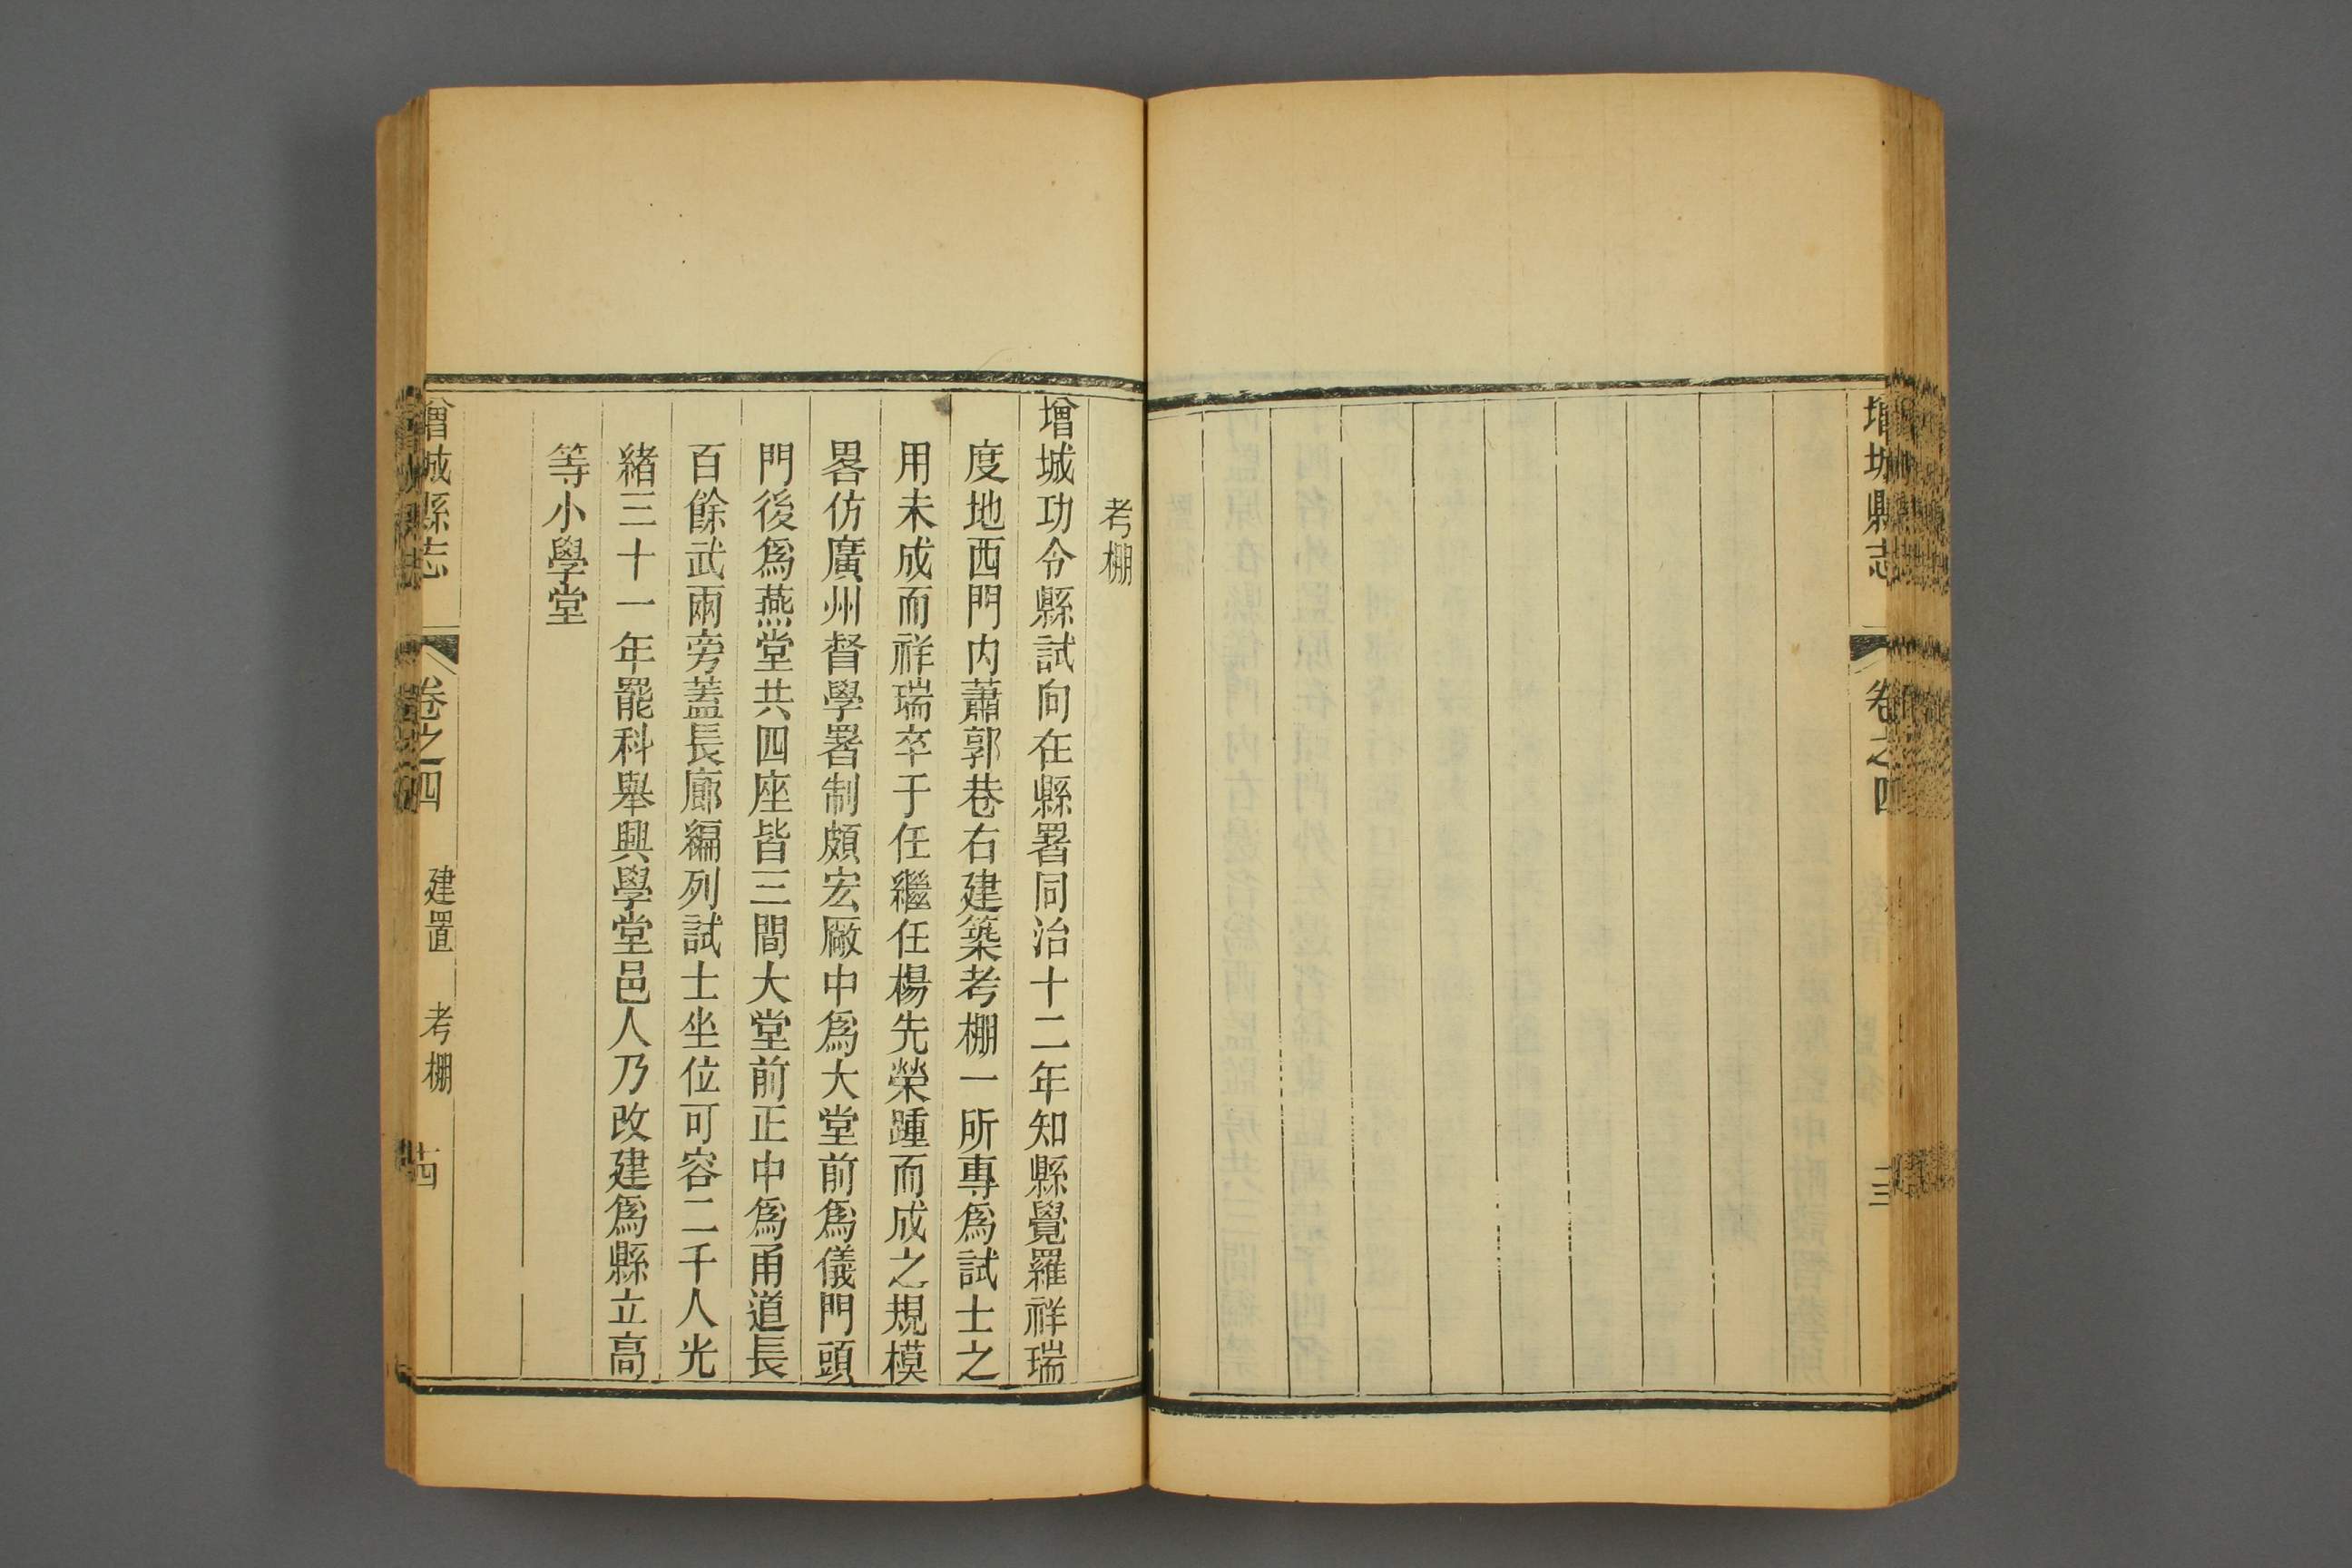 增城縣志 卷之四
考棚
增城功令縣試向在縣署同治十二年知縣覺羅祥瑞
度地西門内蕭郭巷右建築考棚一所專爲試士之
用未成而祥瑞卒于任繼任楊先榮踵而成之規模
畧仿廣州督學署制頗宏厰中爲大堂前爲儀門頭
門後爲燕堂共四座皆三間大堂前正中爲甬道長
百餘武兩旁蓋長廊編列試士坐位可容二千人光
緒三十一年罷科舉興學堂邑人乃改建爲縣立高
等小學堂
增城縣志 卷之四 建置 考棚 十四